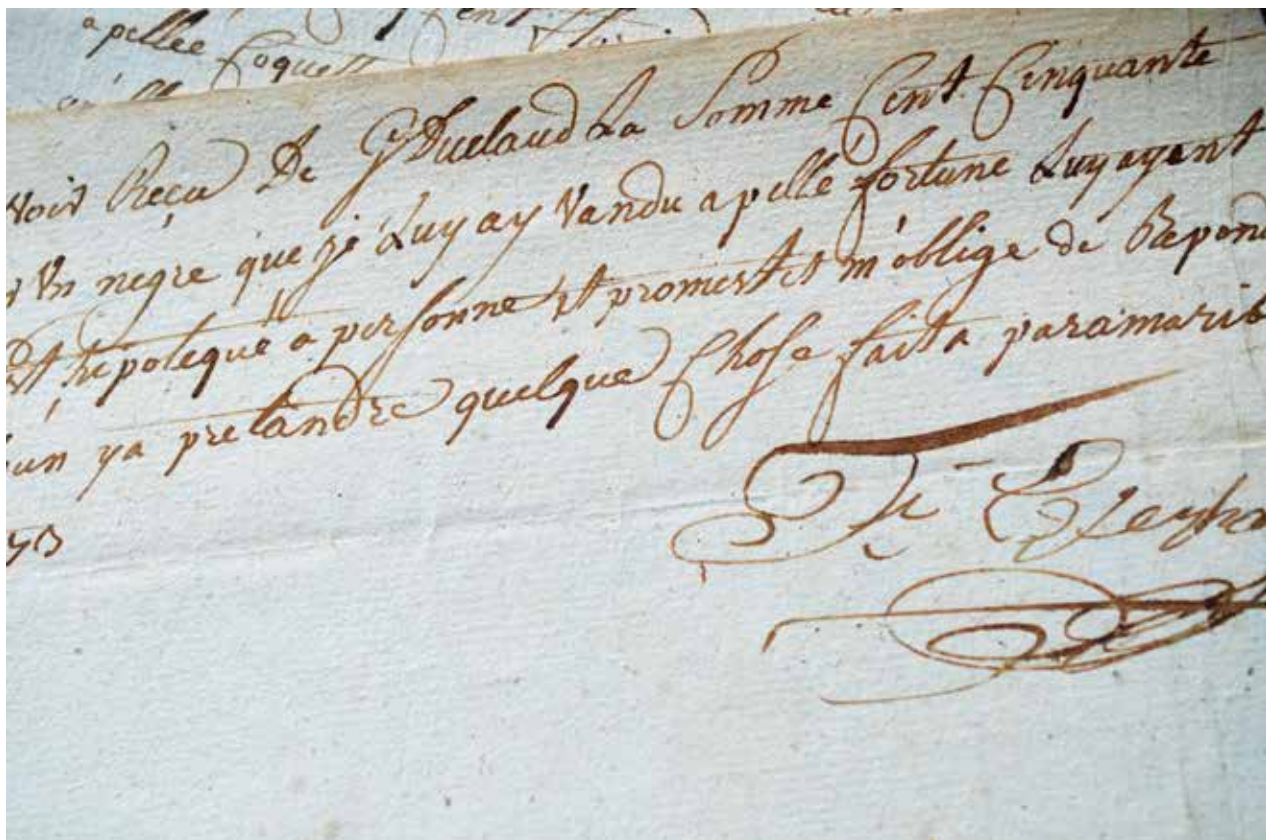 apellée Coquett
voir Reçu De G Duclaud La Somme Cent Cinquante
Un negre que je Luy ay Vandu apelle fortune Luy ayant
hipotequé a personne et promest et m'oblige de Repond
un ya pretandre quelque Chose fait a paramarib